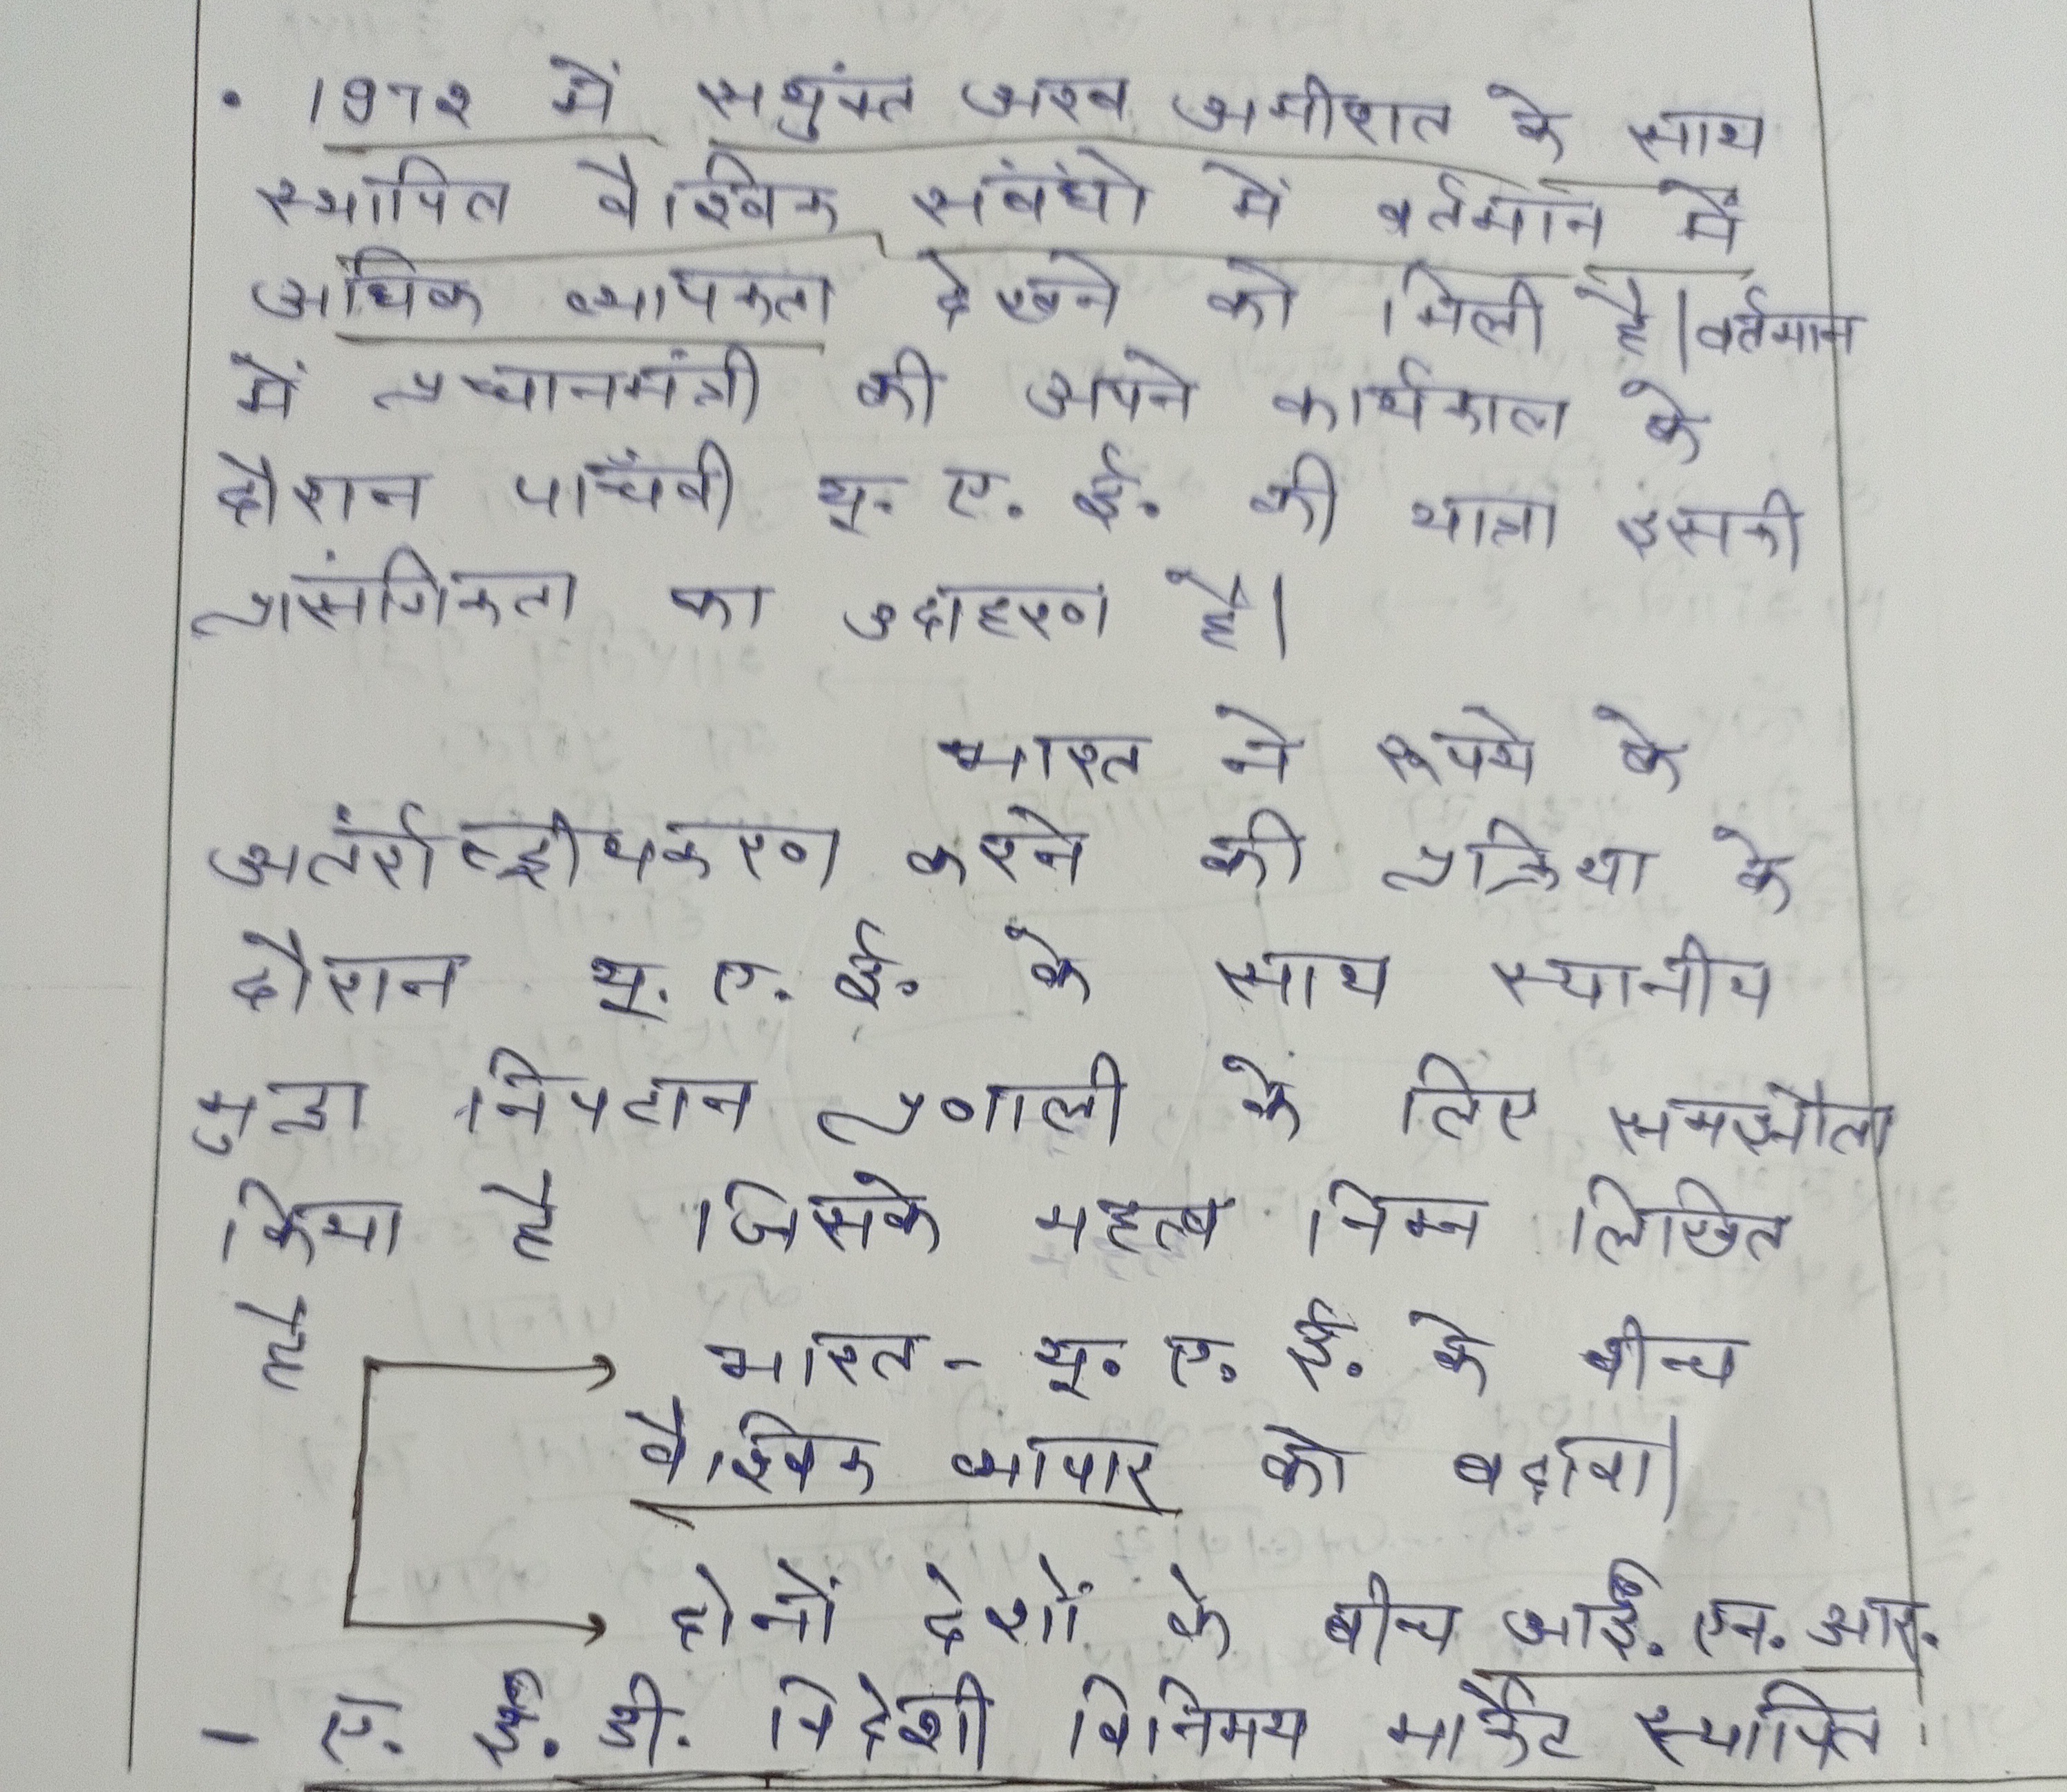 • 1972 में सयुंक्त अरब अमीरात के साथ
स्थापित वैश्विक संबंधो में वर्तमान में
अधिक व्यापकता देखने को मिली है।वर्तमान
में प्रधानमंत्री की अपने कार्यकाल के
दौरान पाचँवी यू. ए. ई. की यात्रा इसकी
प्रासंगिकता का उदाहरण है।
भारत ने रुपये के
अतंर्राष्ट्रीयकरण करने की प्रक्रिया के
दौरान यू. ए. ई. के साथ स्थानीय
मुद्रा निपटान प्रणाली के लिए समझौता
किया है जिसके महत्व निम्न लिखित
है
→ भारत - यू. ए. ई. के बीच
वैश्विक व्यापार को बढावा।
→ दोनों देशों के बीच आई. एन. आर.
- ए. ई. डी. विदेशी विनिमय मार्केट स्थापित।